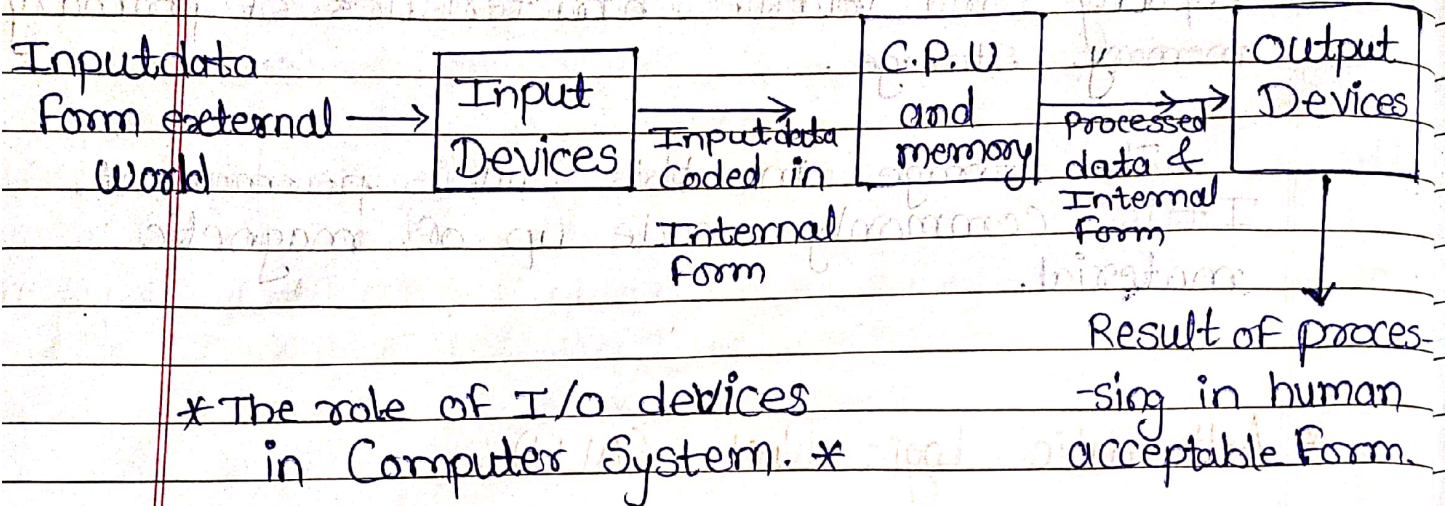 Inputdata
Form external
World
Input
Devices
Inputdata
Coded in
Internal
Form
C.P.U
and
memory
Processed
data &
Internal
Form
Output
Devices
Result of proces-
-sing in human
acceptable Form.
*The role of I/O devices
in Computer System. *